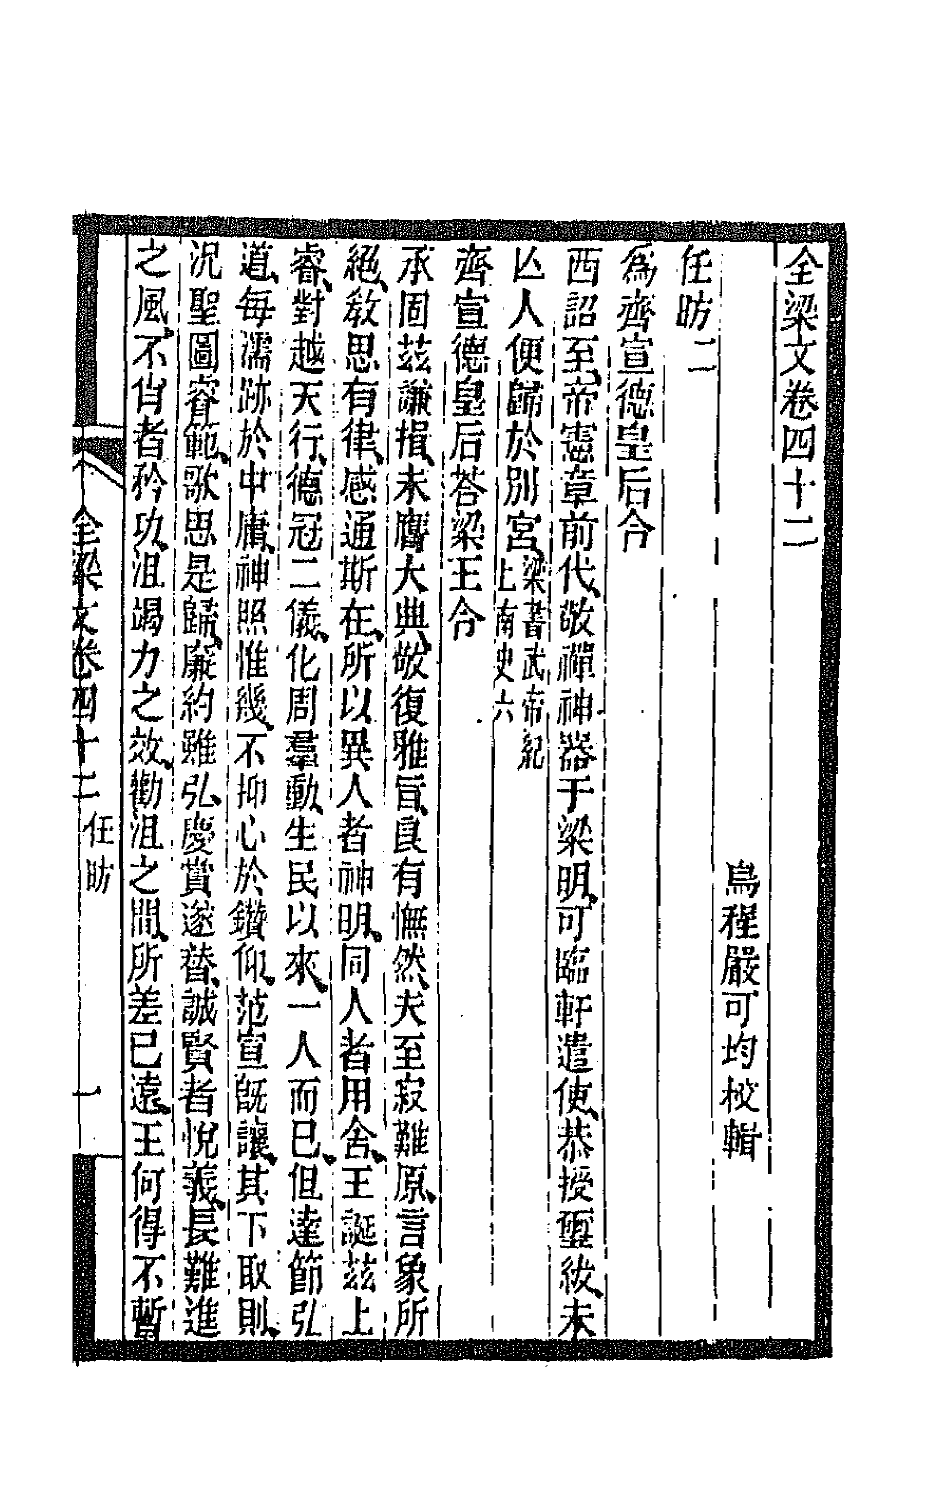 全梁文卷四十二
烏程嚴可均校輯
任昉二
爲齊宣德皇后令
西詔至、帝憲章前代、敬禪神器于梁明、可臨軒遣使、恭授璽紱、未
亾人便歸於別宮、梁書武帝紀上南史六
齊宣德皇后荅梁王令
承固茲謙揖、未膺大典、敬復雅旨、良有憮然、夫至寂難原、言象所
絕、敎思有律、感通斯在、所以異人者神明、同人者用舍、王誕茲上
睿、對越天行、德冠二儀、化周羣動、生民以來、一人而已、但達節弘
道、每濡跡於中庸、神照惟幾、不抑心於鑽仰、范宣旣讓、其下取則、
況聖圖睿範、歌思是歸、廉約雖弘、慶賞遂替、誠賢者悅義、長難進
之風、不肖者矜功、沮竭力之效、勸沮之閒、所差已遠、王何得不暫
全梁文卷四十二 任昉 一